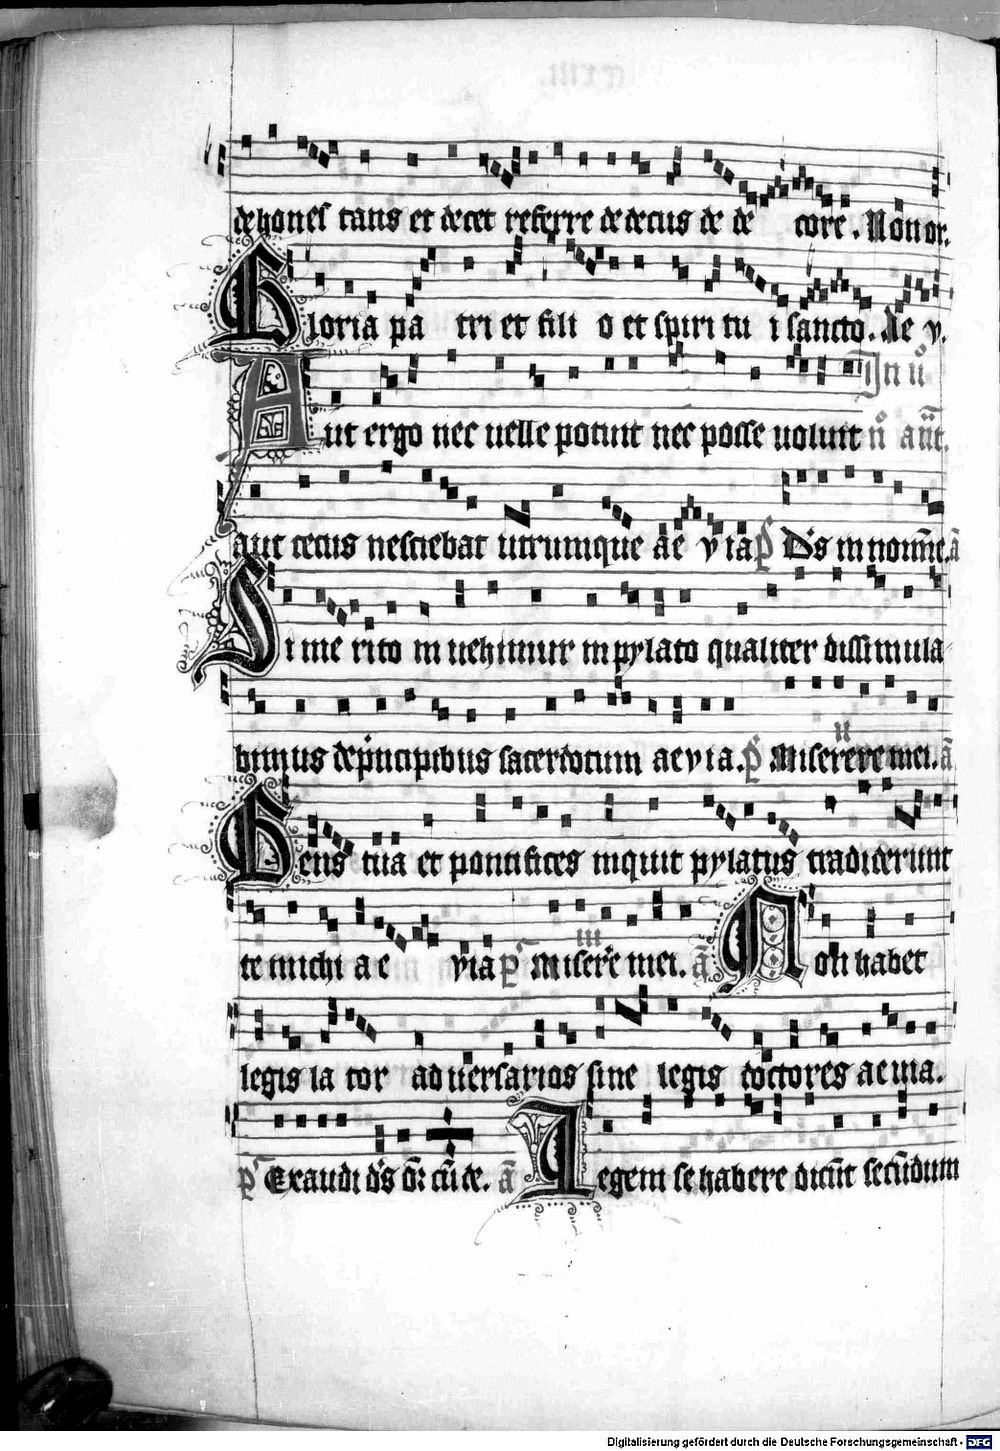 dehones tatis et decet referre dedecus de de core. Non or.
Gloria pa tri et fili o et spiri tu i sancto. Ae v.
In iiº
Aut ergo nec uelle potuit nec posse uoluit nº añt.
aut cecus nesciebat utrumque ae v ia p̃s Dˢs in nomine. ã
Si me rito in uehimur in pylato qualiter dissimula
ii
bimus de pͥncipibus sacerdotum aevia. p̃s Miserere mei. ã
Gens tua et pontifices inquit pylatus tradiderunt
iii
te michi ae via p̃s Misere mei. ã Non habet
legis la tor aduersarios sine legis doctores aeuia.
p̃s Exaudi dˢs or̃: cũ de. ã Legem se habere dicũt secũdum
Digitalisierung gefördert durch die Deutsche Forschungsgemeinschaft - DFG